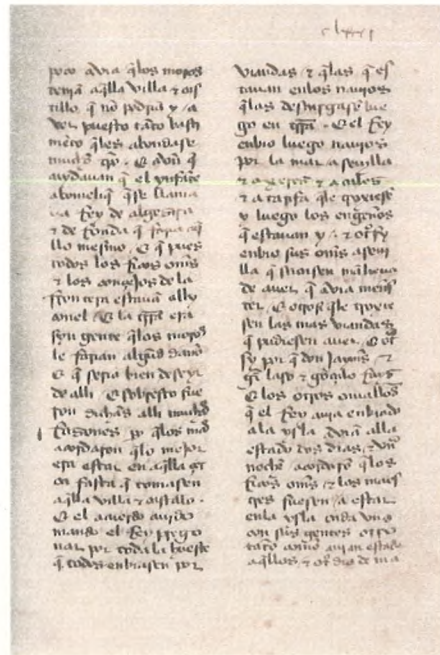 clxxxi
poco avia qlos moros
tenia aqlla villa & cas
tillo q no podia y a
ver puesto tato basti
meto qles abondase
mucho tpo. E avn q
cuydauan q el ynfate
abomeliq qse llama
ua Rey de algezira
& de Ronda q faria aq
llo mesmo. E q pues
todos los Ricos oms
& los conçejos dela
frontera estauan ally
conel. E la era
syn gente qlos moros
le farian algud daño
E q seria bien de se yr
de alli. E sobresto fue
ron dichas alli muchas
Razones po qlos mas
acordaron qlo mejor
era estar en aqlla
fasta q tomasen
aqlla villa & castalo.
E el acuerdo auido
mando el Rey prego
nar por toda la hueste
q todos enbiasen por
viandas & qlas q es
tauan enlos nauios
qlas descargase lue
go en. E el Rey
enbio luego nauios
por la mar a seuilla
& a xerez &
& a tarifa qle troxiese
y luego los engeños
q estauan y. & otsy
enbio sus oms a seui
lla q troxiesen madera
de auer q avia menes
ter. E otros qle troxie
sen las mas viandas
q pudiesen auer. E ot
sy por q don Jayme &
laso & gonçalo
E los otros vasallos
q el Rey auia enbiado
ala ysla avia alla
estado dos dias & vna
noche acordaro qlos
Ricos oms & los maes
tres fuesen a estar
enla ysla cada vno
con sus gentes otro
tato como auian estado
aqllos. & otro dia de ma